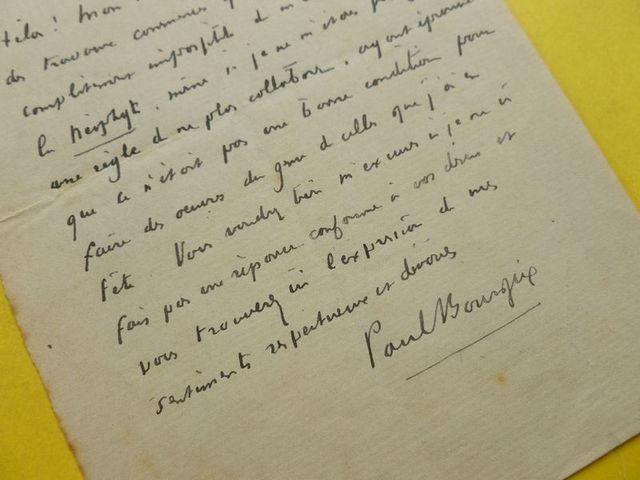 hélas ! mon
des travaux commencés
complètement impossible de m
le Néophyte, même si je ne m'étais fait
une règle de ne plus collaborer, ayant éprouvé
que ce n'était pas une bonne condition pour
faire des oeuvres du genre de celles que j'ai en
tête. Vous voudrez bien m'excuser si je ne
fais pas une réponse conforme à vos désirs et
vous trouverez ici l'expression de mes
sentiments respectueux et dévoués
Paul Bourget